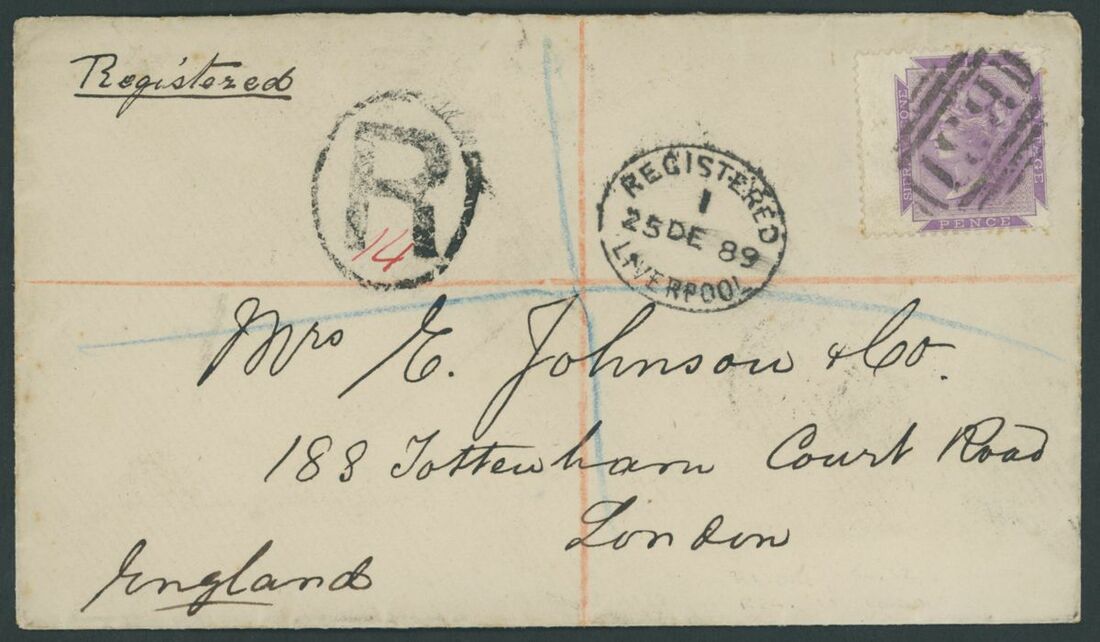 Registered
R
14
REGISTERED
1
25 DE 89
LIVERPOOL
SIERRA ONE
PENCE
Mrs E. Johnson & Co.
188 Tottenham Court Road
London
England